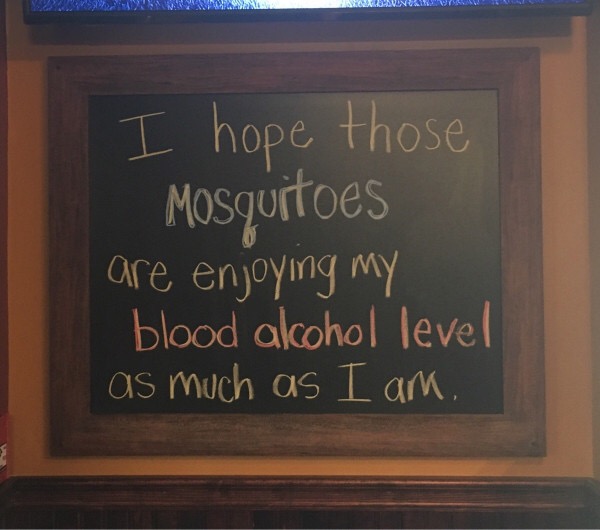 I hope those
Mosquitoes
are enjoying my
blood alcohol level
as much as I am.